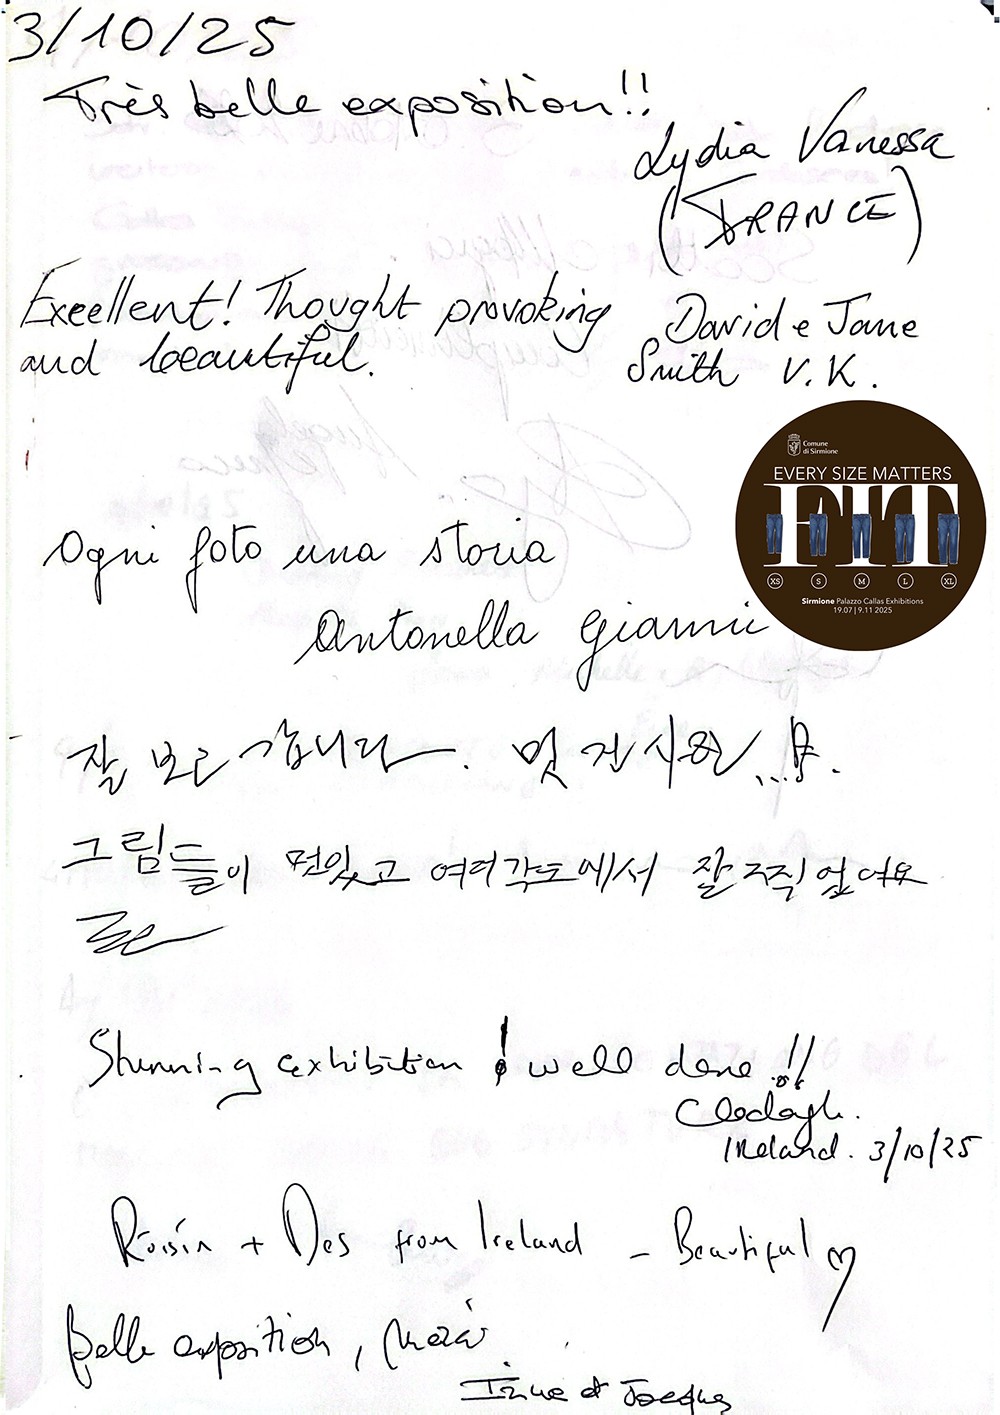 3/10/25
Très belle exposition!!
Lydia Vanessa
(FRANCE)
Exeellent! Thought provoking
and beautiful.
David e Jane
Smith U.K.
Comune
di Sirmione
EVERY SIZE MATTERS
FIT
XS S M L XL
Sirmione Palazzo Callas Exhibitions
19.07 | 9.11 2025
Ogni foto una storia
Antonella
잘 보고 갑니다. 멋진
그림들이 멋있고 여러각도에서 잘 찍었어요
Stunning exhibition ! well done !!
Clodagh.
Ireland. 3/10/25
Róisín + Des from Ireland – Beautiful
Belle exposition, Merci
et Jacques